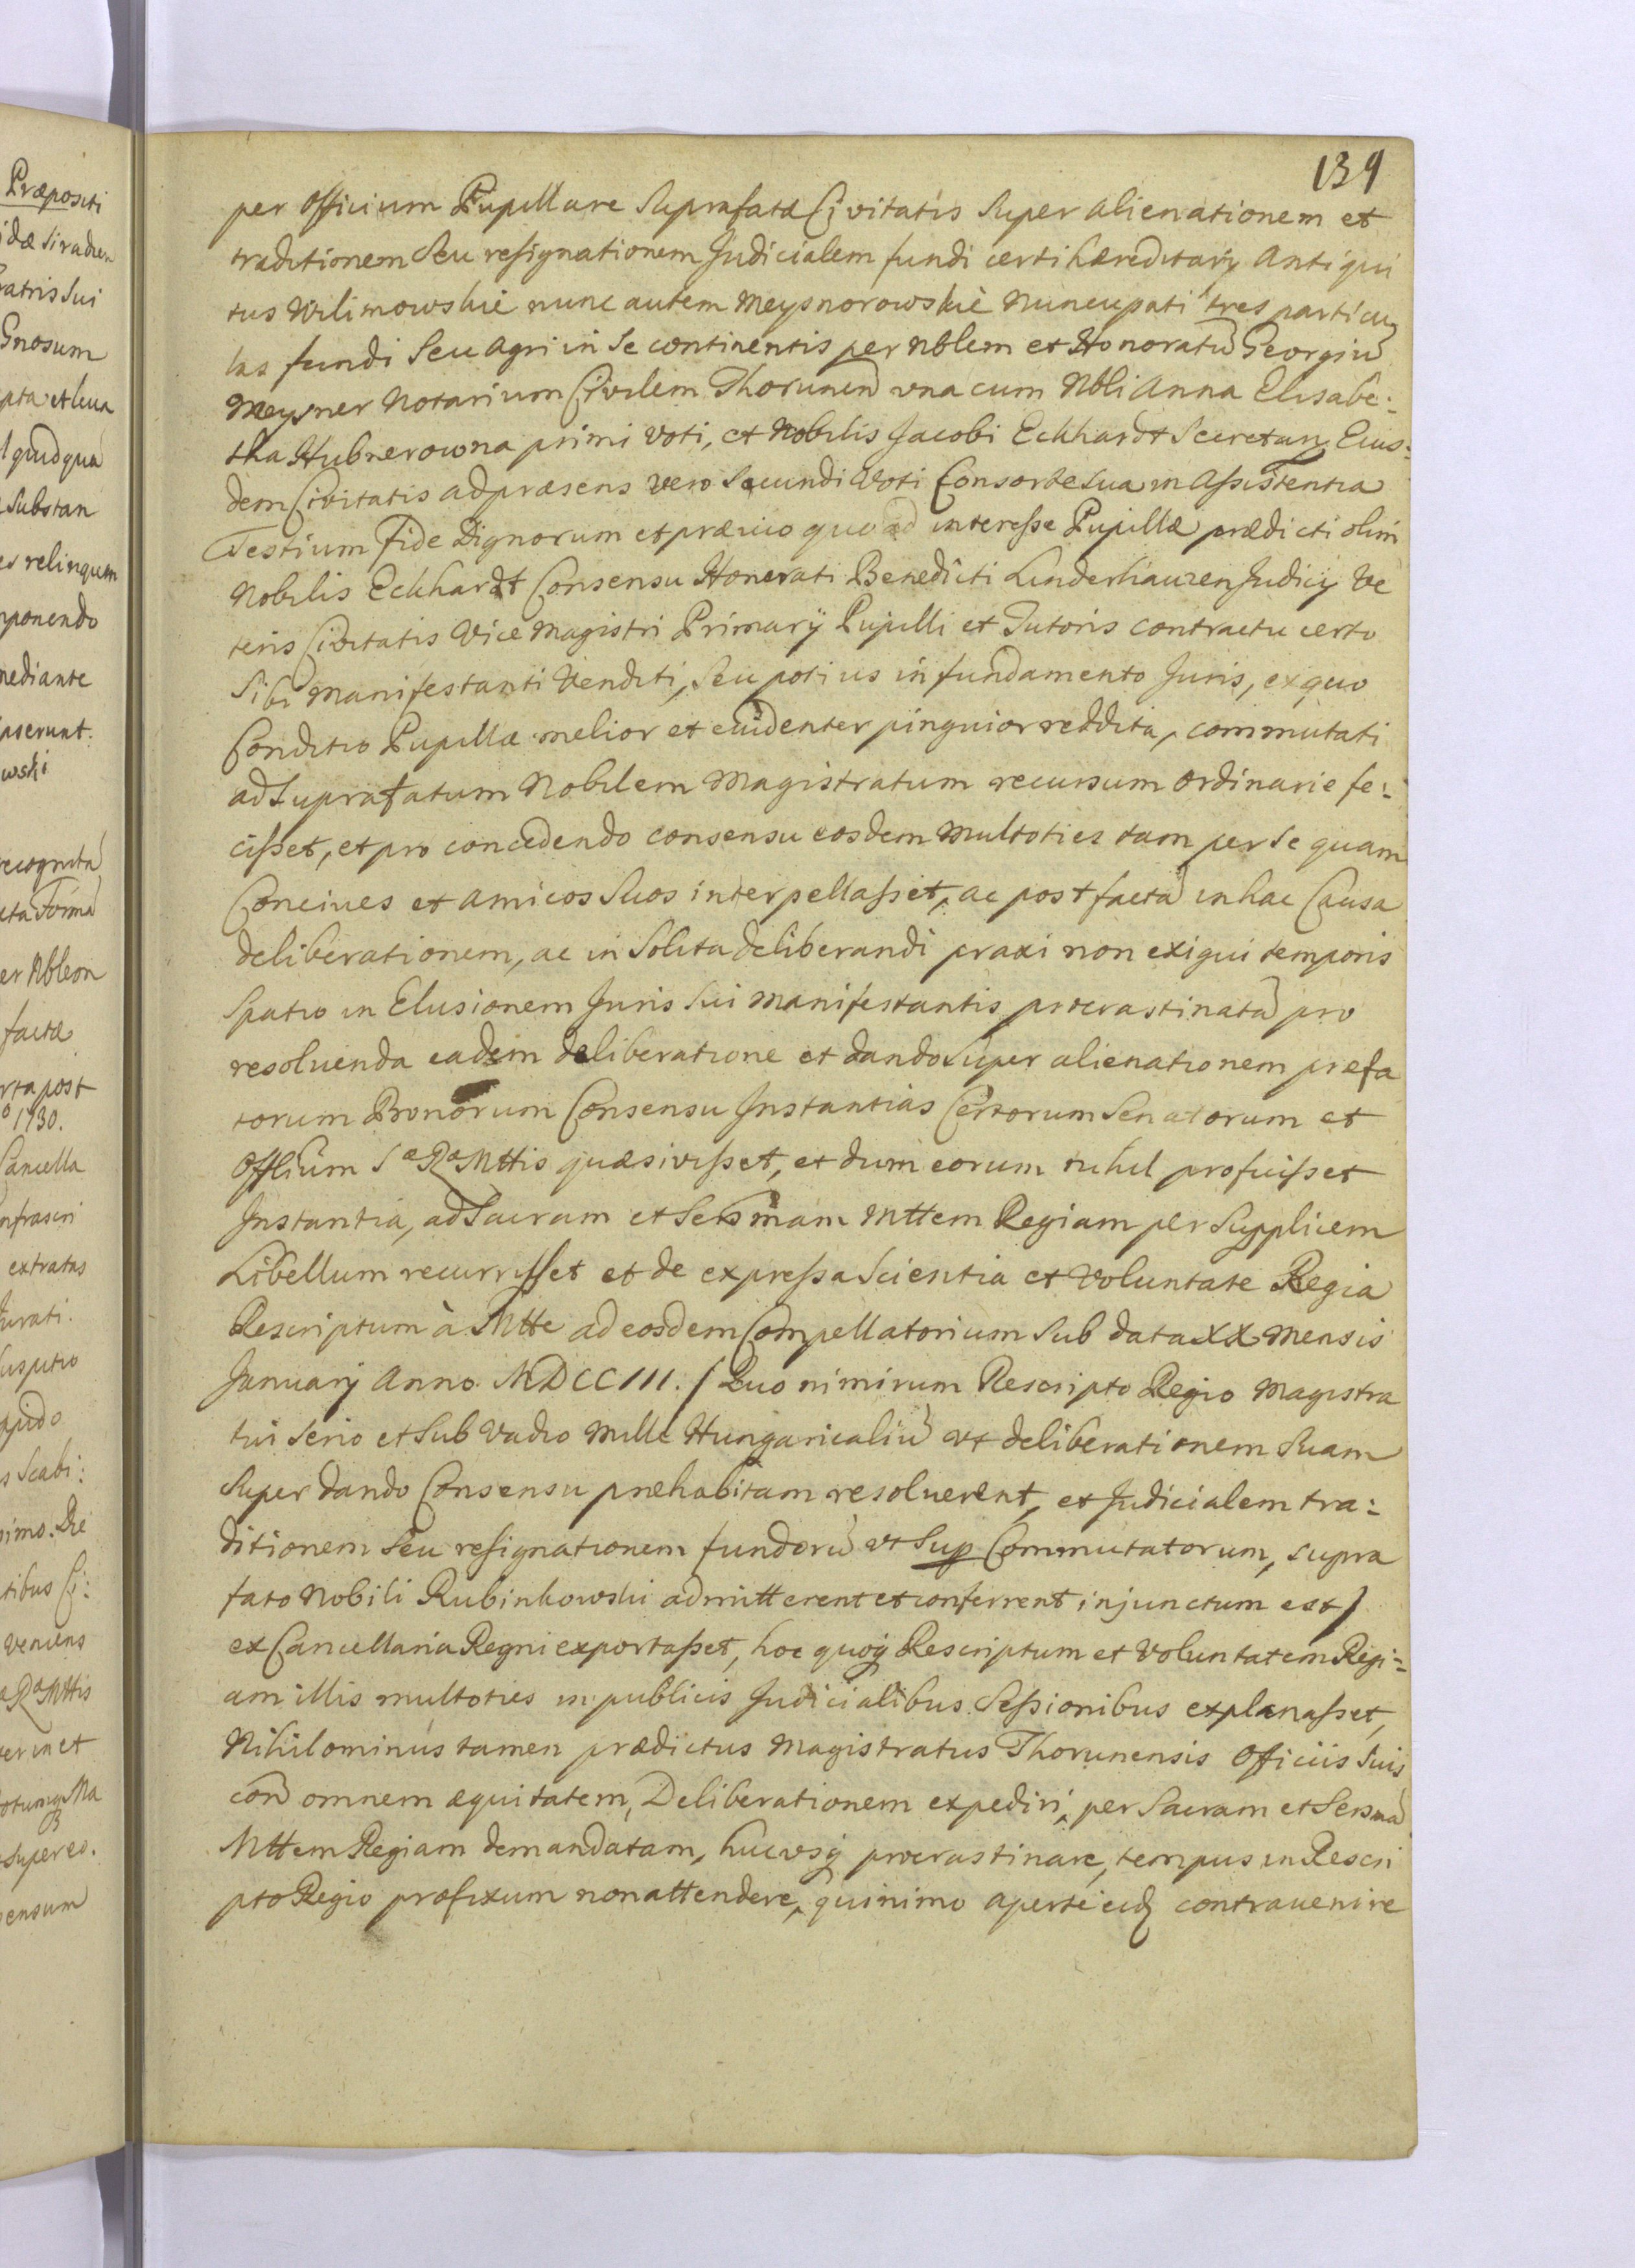 139
per Officium Pupillare Suprafatæ Civitatis Super alienationem et
traditionem Seu resignationem Judicialem fundi certi hæreditarij Antiqui
tus Wilimowskie nunc autem Meysnorowskie Nuncupati tres particu
las fundi Seu Agri in Se continentis per Nblem et Honoratũ Georgiũ
Meysner Notarium Civilem Thorunen vna cum Nbli Anna Elisabe:
tha Hubnerowna primi voti, et Nobilis Jacobi Eckhardt Secretarij Eius:
dem Civitatis ad præsens vero Secundi Voti Consorte Sua in Assistentia
Testium Fide Dignorum et præuio quoad interesse Pupillæ prædicti olim
Nobilis Eckhardt Consensu Honorati Benedicti Linderhauzen Judicij Ve
teris Civitatis Vice Magistri Primarÿ Pupilli et Tutoris contractu certo
Sibi Manifestanti Venditi, Seu potius in fundamento Juris, ex quo
Conditio Pupillæ melior et euidenter pinguior reddita, commutati
ad Suprafatum Nobilem Magistratum recursum ordinarie fe:
cisset, et pro concedendo consensu eosdem multoties tam per Se quam
Conciues et Amicos Suos interpellasset, ac post factã in hac Causa
deliberationem, ac in Solita deliberandi praxi non exigui temporis
Spatio in Elusionem Juris Sui Manifestantis procrastinatã pro
resoluenda eadem deliberatione et dando Super alienationem præfa
torum Bonorum Consensu Instantias Certorum Senatorum et
Offlium Sæ Ræ Mttis quæsivisset, et dum eorum nihil profuisset
Instantia, ad Sacram et Sersmam Mttem Regiam per Supplicem
Libellum recurrisset et de expressa Scientia et Voluntate Regia
Rescriptum à Mtte ad eosdem Compellatorium Sub data XX Mensis
Januarij Anno MDCCIII. / Quo nimirum Rescripto Regio Magistra
tui Serio et Sub Vadio Mille Hungaricaliũ vt deliberationem Suam
Super dando Consensu præhabitam resoluerent, et Judicialem tra:
ditionem Seu resignationem fundorũ vt Sup Commutatorum, supra
fato Nobili Rubinkowski admitterent et conferrent injunctum est /
ex Cancellaria Regni exportasset, hoc quoq Rescriptum et Voluntatem Regi=
am illis multoties in publicis Judicialibus Sessionibus explanasset,
Nihilominus tamen prædictus Magistratus Thorunensis Officiis Suis
con omnem æquitatem, Deliberationem expediri, per Sacram et Sersmã
Mttem Regiam demandatam, hucvsq procrastinare, tempus in Rescri
pto Regio præfixum non attendere, quinimo aperte eid contrauenire